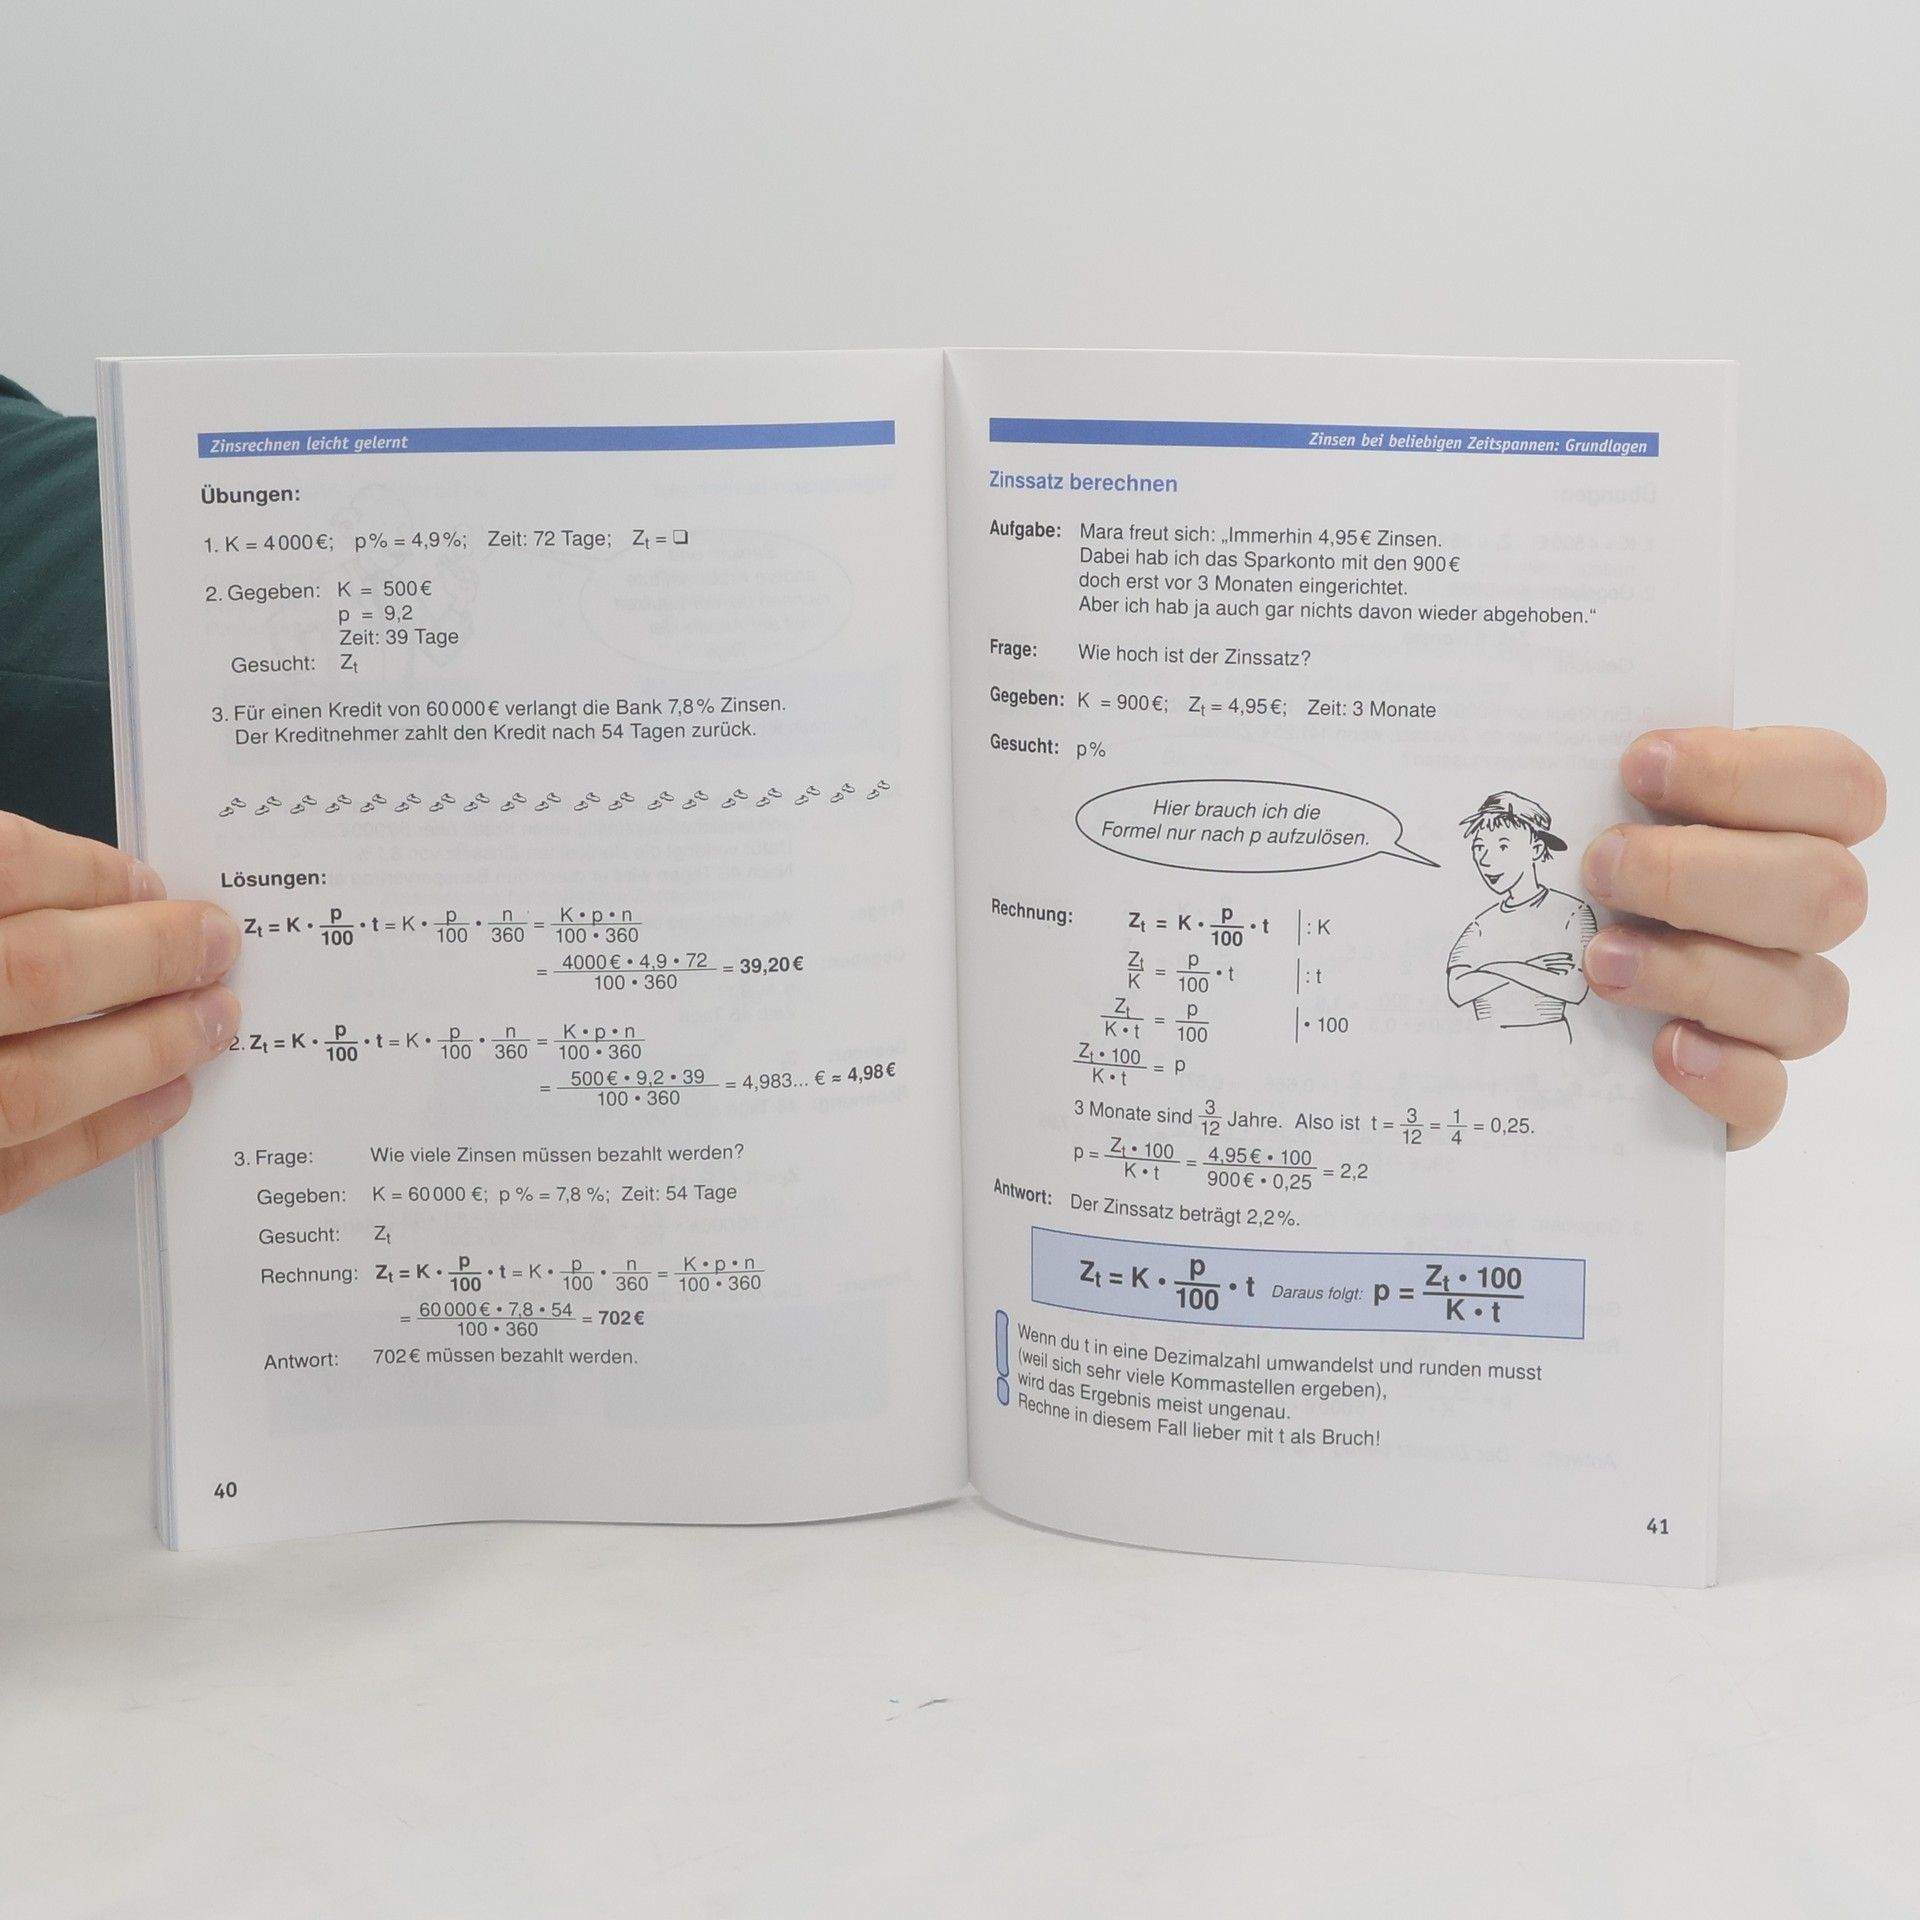 Zinsrechnen leicht gelernt
Übungen:
1. K = 4000 €; p% = 4,9 %; Zeit: 72 Tage; Zt = ❑
2. Gegeben: K = 500 €
p = 9,2
Zeit: 39 Tage
Gesucht: Zt
3. Für einen Kredit von 60 000 € verlangt die Bank 7,8 % Zinsen.
Der Kreditnehmer zahlt den Kredit nach 54 Tagen zurück.
Lösungen:
Zt = K • p/100 • t = K • p/100 • n/360 = K • p • n / 100 • 360
= 4000 € • 4,9 • 72 / 100 • 360 = 39,20 €
2. Zt = K • p/100 • t = K • p/100 • n/360 = K • p • n / 100 • 360
= 500 € • 9,2 • 39 / 100 • 360 = 4,983... € ≈ 4,98 €
3. Frage: Wie viele Zinsen müssen bezahlt werden?
Gegeben: K = 60 000 €; p % = 7,8 %; Zeit: 54 Tage
Gesucht: Zt
Rechnung: Zt = K • p/100 • t = K • p/100 • n/360 = K • p • n / 100 • 360
= 60 000 € • 7,8 • 54 / 100 • 360 = 702 €
Antwort: 702 € müssen bezahlt werden.
40
Zinsen bei beliebigen Zeitspannen: Grundlagen
Zinssatz berechnen
Aufgabe: Mara freut sich: „Immerhin 4,95 € Zinsen.
Dabei hab ich das Sparkonto mit den 900 €
doch erst vor 3 Monaten eingerichtet.
Aber ich hab ja auch gar nichts davon wieder abgehoben.“
Frage: Wie hoch ist der Zinssatz?
Gegeben: K = 900 €; Zt = 4,95 €; Zeit: 3 Monate
Gesucht: p%
Hier brauch ich die
Formel nur nach p aufzulösen.
Rechnung: Zt = K • p/100 • t | : K
Zt/K = p/100 • t | : t
Zt / K • t = p/100 | • 100
Zt • 100 / K • t = p
3 Monate sind 3/12 Jahre. Also ist t = 3/12 = 1/4 = 0,25.
p = Zt • 100 / K • t = 4,95 € • 100 / 900 € • 0,25 = 2,2
Antwort: Der Zinssatz beträgt 2,2 %.
Zt = K • p/100 • t Daraus folgt: p = Zt • 100 / K • t
Wenn du t in eine Dezimalzahl umwandelst und runden musst
(weil sich sehr viele Kommastellen ergeben),
wird das Ergebnis meist ungenau.
Rechne in diesem Fall lieber mit t als Bruch!
41